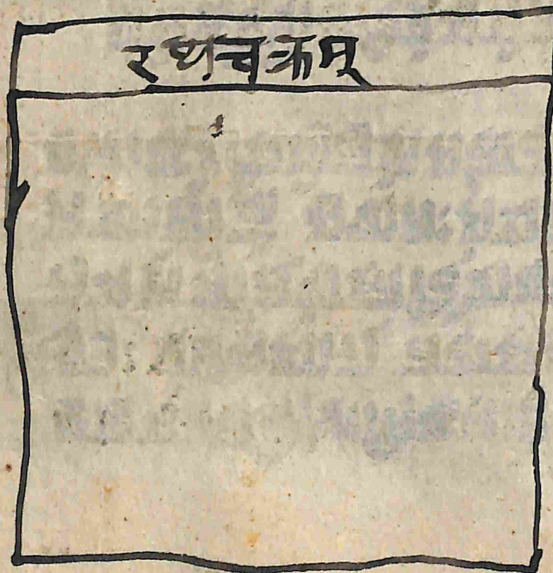 रथचक्रम्